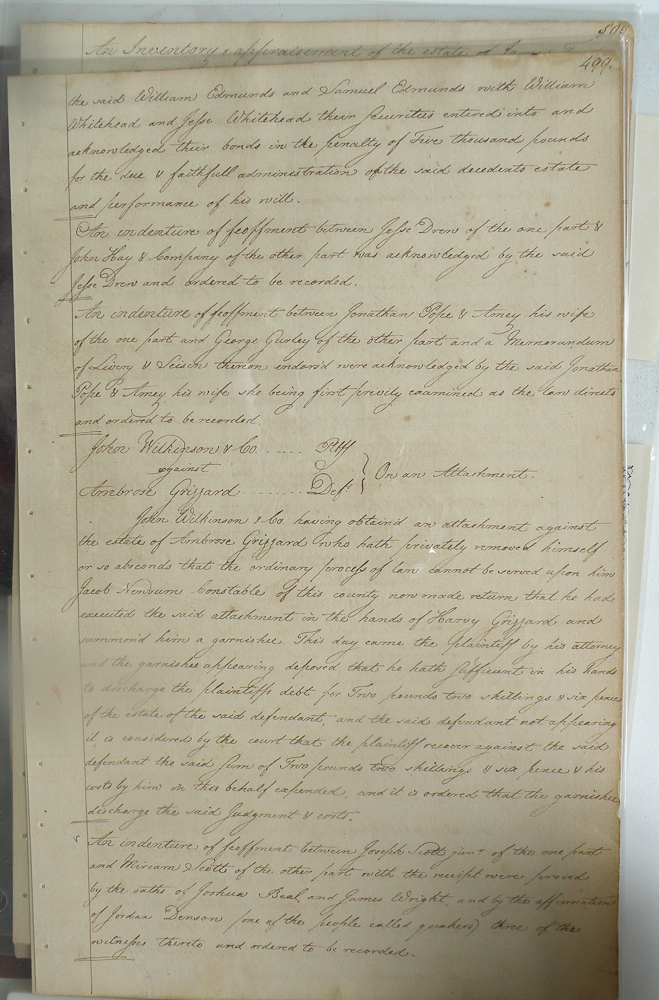 50
An Inventory & appraisement of the estate of
499.
the said William Edmunds and Samuel Edmunds with William
Whitehead and Jesse Whitehead their securities entered into and
acknowledged their bonds in the penalty of Five thousand pounds
for the due & faithfull administration of the said decedents estate
and performance of his will.
An indenture of feoffment between Jesse Drew of the one part &
John Hay & Company of the other part was acknowledged by the said
Jesse Drew and ordered to be recorded.
An indenture of feoffment between Jonathan Pope & Amey his wife
of the one part and George Gurley of the other part and a Memorandum
of Livery & Seisin thereon endors'd were acknowledged by the said Jonathan
Pope & Amey his wife she being first previly examined as the law directs
and ordered to be recorded.
John Wilkinson & Co. ...... Pltff
against
Ambrose Grizzard .......... Deft.
} On an Attachment.
John Wilkinson & Co having obtaind an attachment against
the estate of Ambrose Grizzard who hath privately removed himself
or so absconds that the ordinary process of law cannot be served upon him
Jacob Newsum Constable of this county now made return that he had
executed the said attachment in the hands of Harvy Grizzard and
summond him a garnishee This day came the Plaintiff by his attorney
and the garnishee appearing deposed that he hath sufficient in his hands
to discharge the plaintiffs debt for Two pounds two shillings & six pence
of the estate of the said defendant, and the said defendant not appearing
it is considered by the court that the plaintiff recover against the said
defendant the said sum of Two pounds two shillings & six pence & his
costs by him in this behalf expended, and it is ordered that the garnishee
discharge the said Judgment & costs.
An indenture of feoffment between Joseph Scott junr. of the one part
and Miriam Scott of the other part with the receipt were proved
by the oaths of Joshua Beal, and James Wright, and by the affirmation
of Jordan Denson (one of the people called quakers) three of the
witnesses thereto and ordered to be recorded.